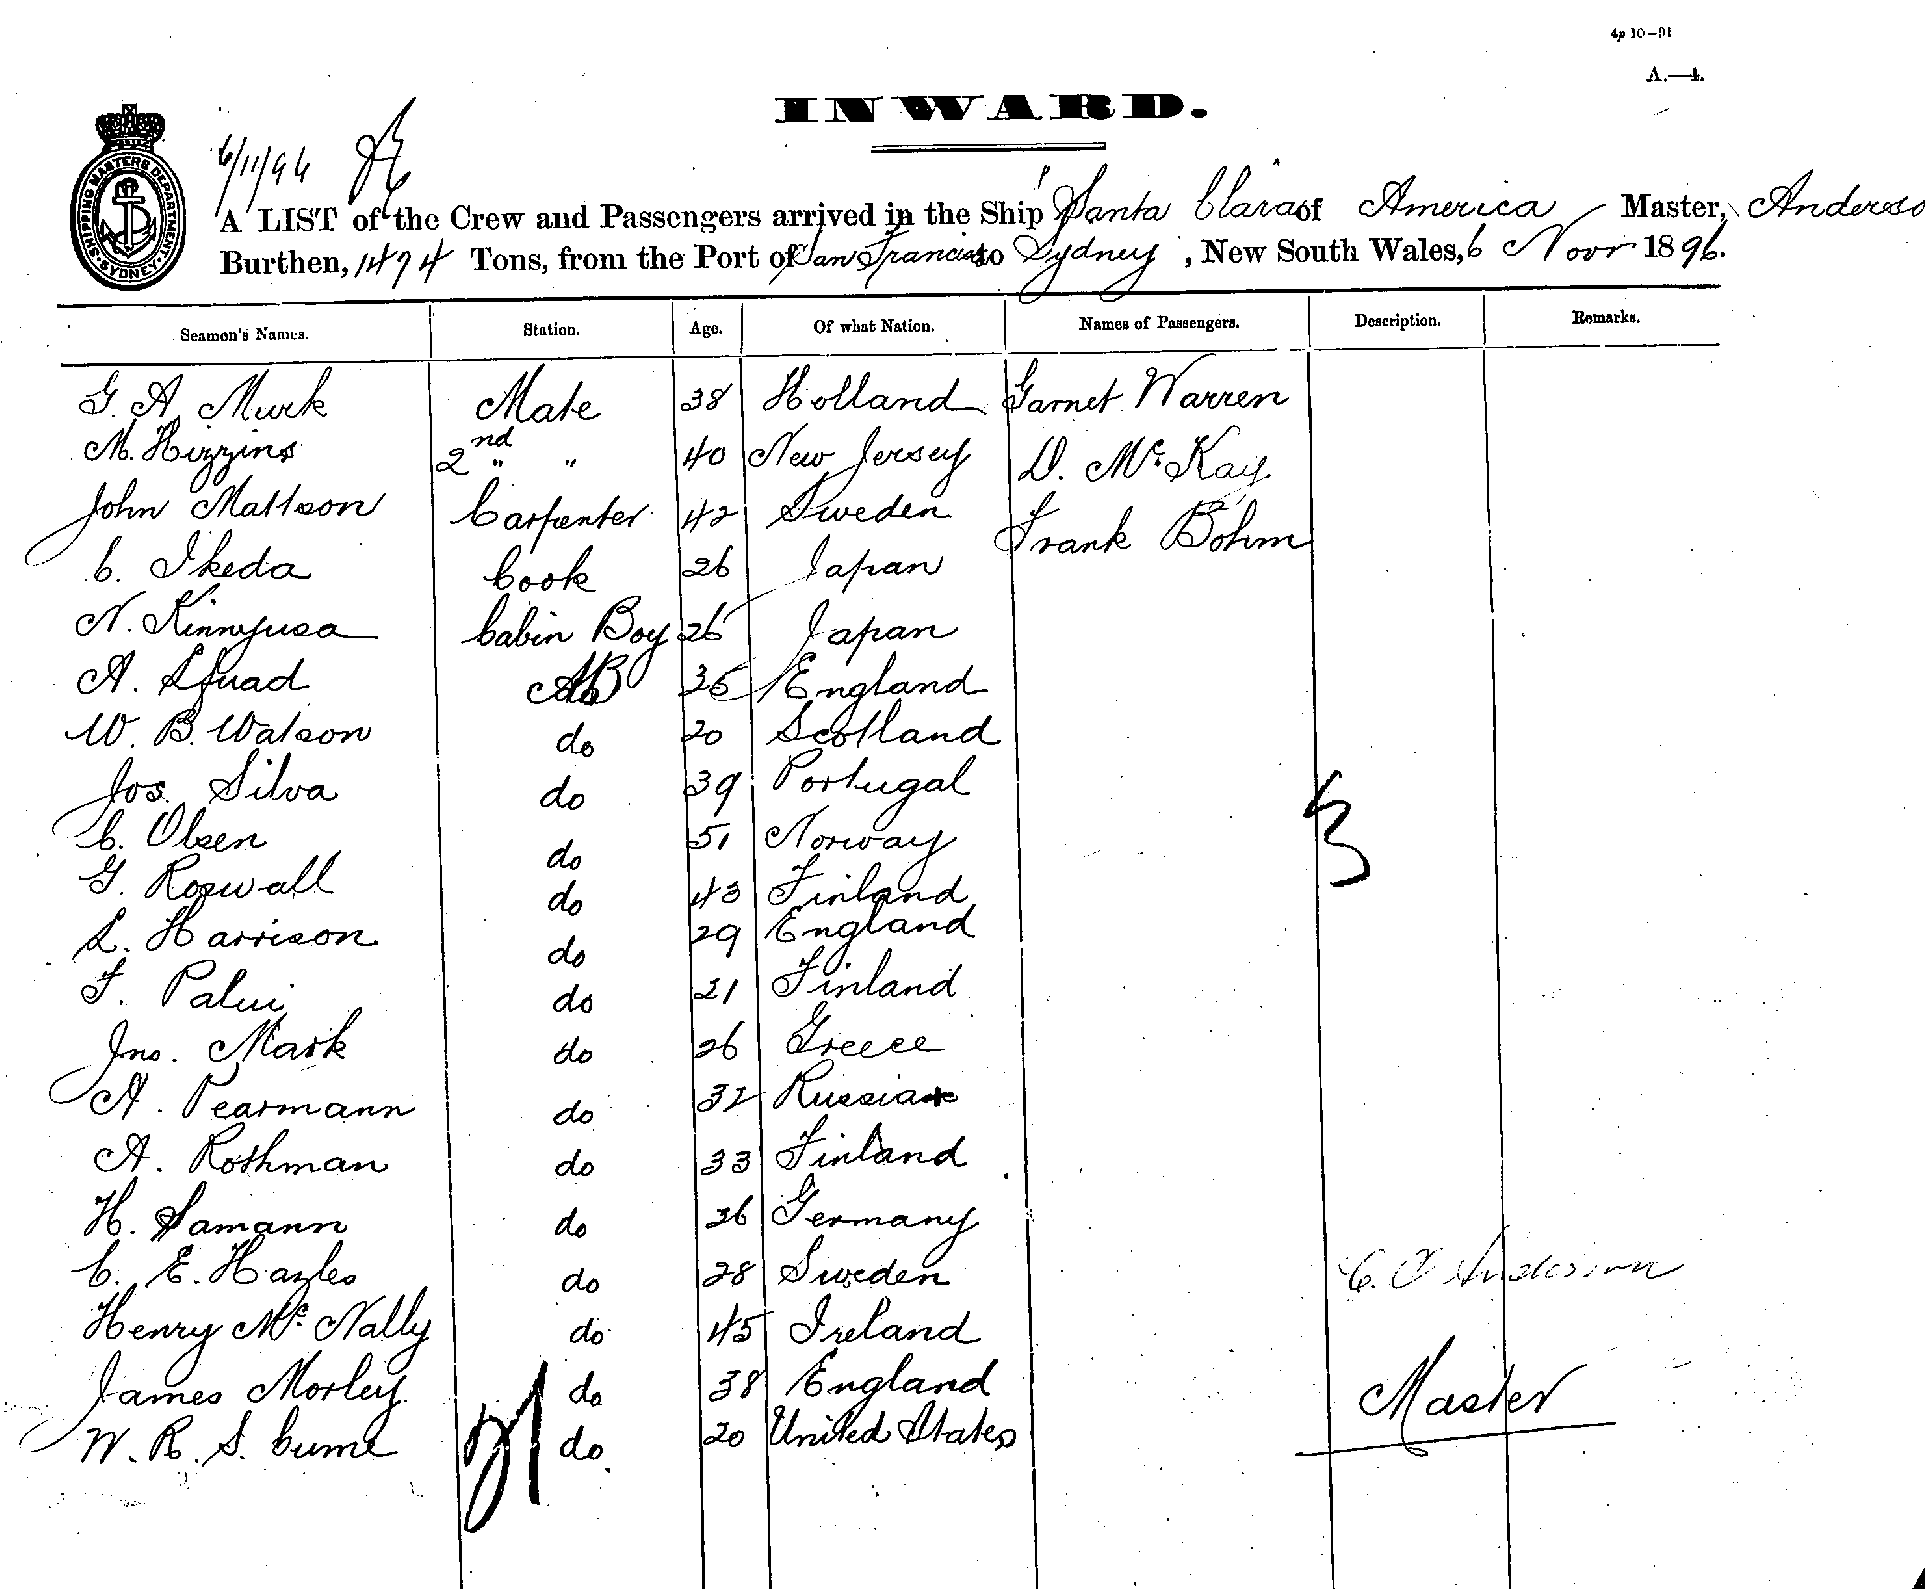 4p 10—91
A.—4.
INWARD.
SHIPPING MASTERS DEPARTMENT · SYDNEY ·
6/11/96
A LIST of the Crew and Passengers arrived in the Ship Santa Clara of America Master, Anderso
Burthen, 1474 Tons, from the Port of San Francisco to Sydney, New South Wales, 6 Novr 1896.
Seamen's Names. Station. Age. Of what Nation. Names of Passengers. Description. Remarks.
G. A. Murk Mate 38 Holland Garnet Warren
M. Higgins 2nd " " 40 New Jersey D. Mc Kay
John Mattson Carpenter 42 Sweden Frank Böhm
C. Ikeda Cook 26 Japan
N. Kinnyusa Cabin Boy 26 Japan
A. AB 35 England
W. B. Watson do 20 Scotland
Jos. Silva do 39 Portugal
C. Olsen do 51 Norway
G. Roswall do 43 Finland
L. Harrison do 29 England
F. do 21 Finland
Jno. Mark do 26 Greece
A. Pearmann do 32 Russia
A. Rothman do 33 Finland
H. Samann do 26 Germany
C. E. Hazles do 28 Sweden
C. O Anderson
Henry Mc Nally do 45 Ireland
James Morley do 38 England
Master
W. R. S. Cume do 20 United States
21
3